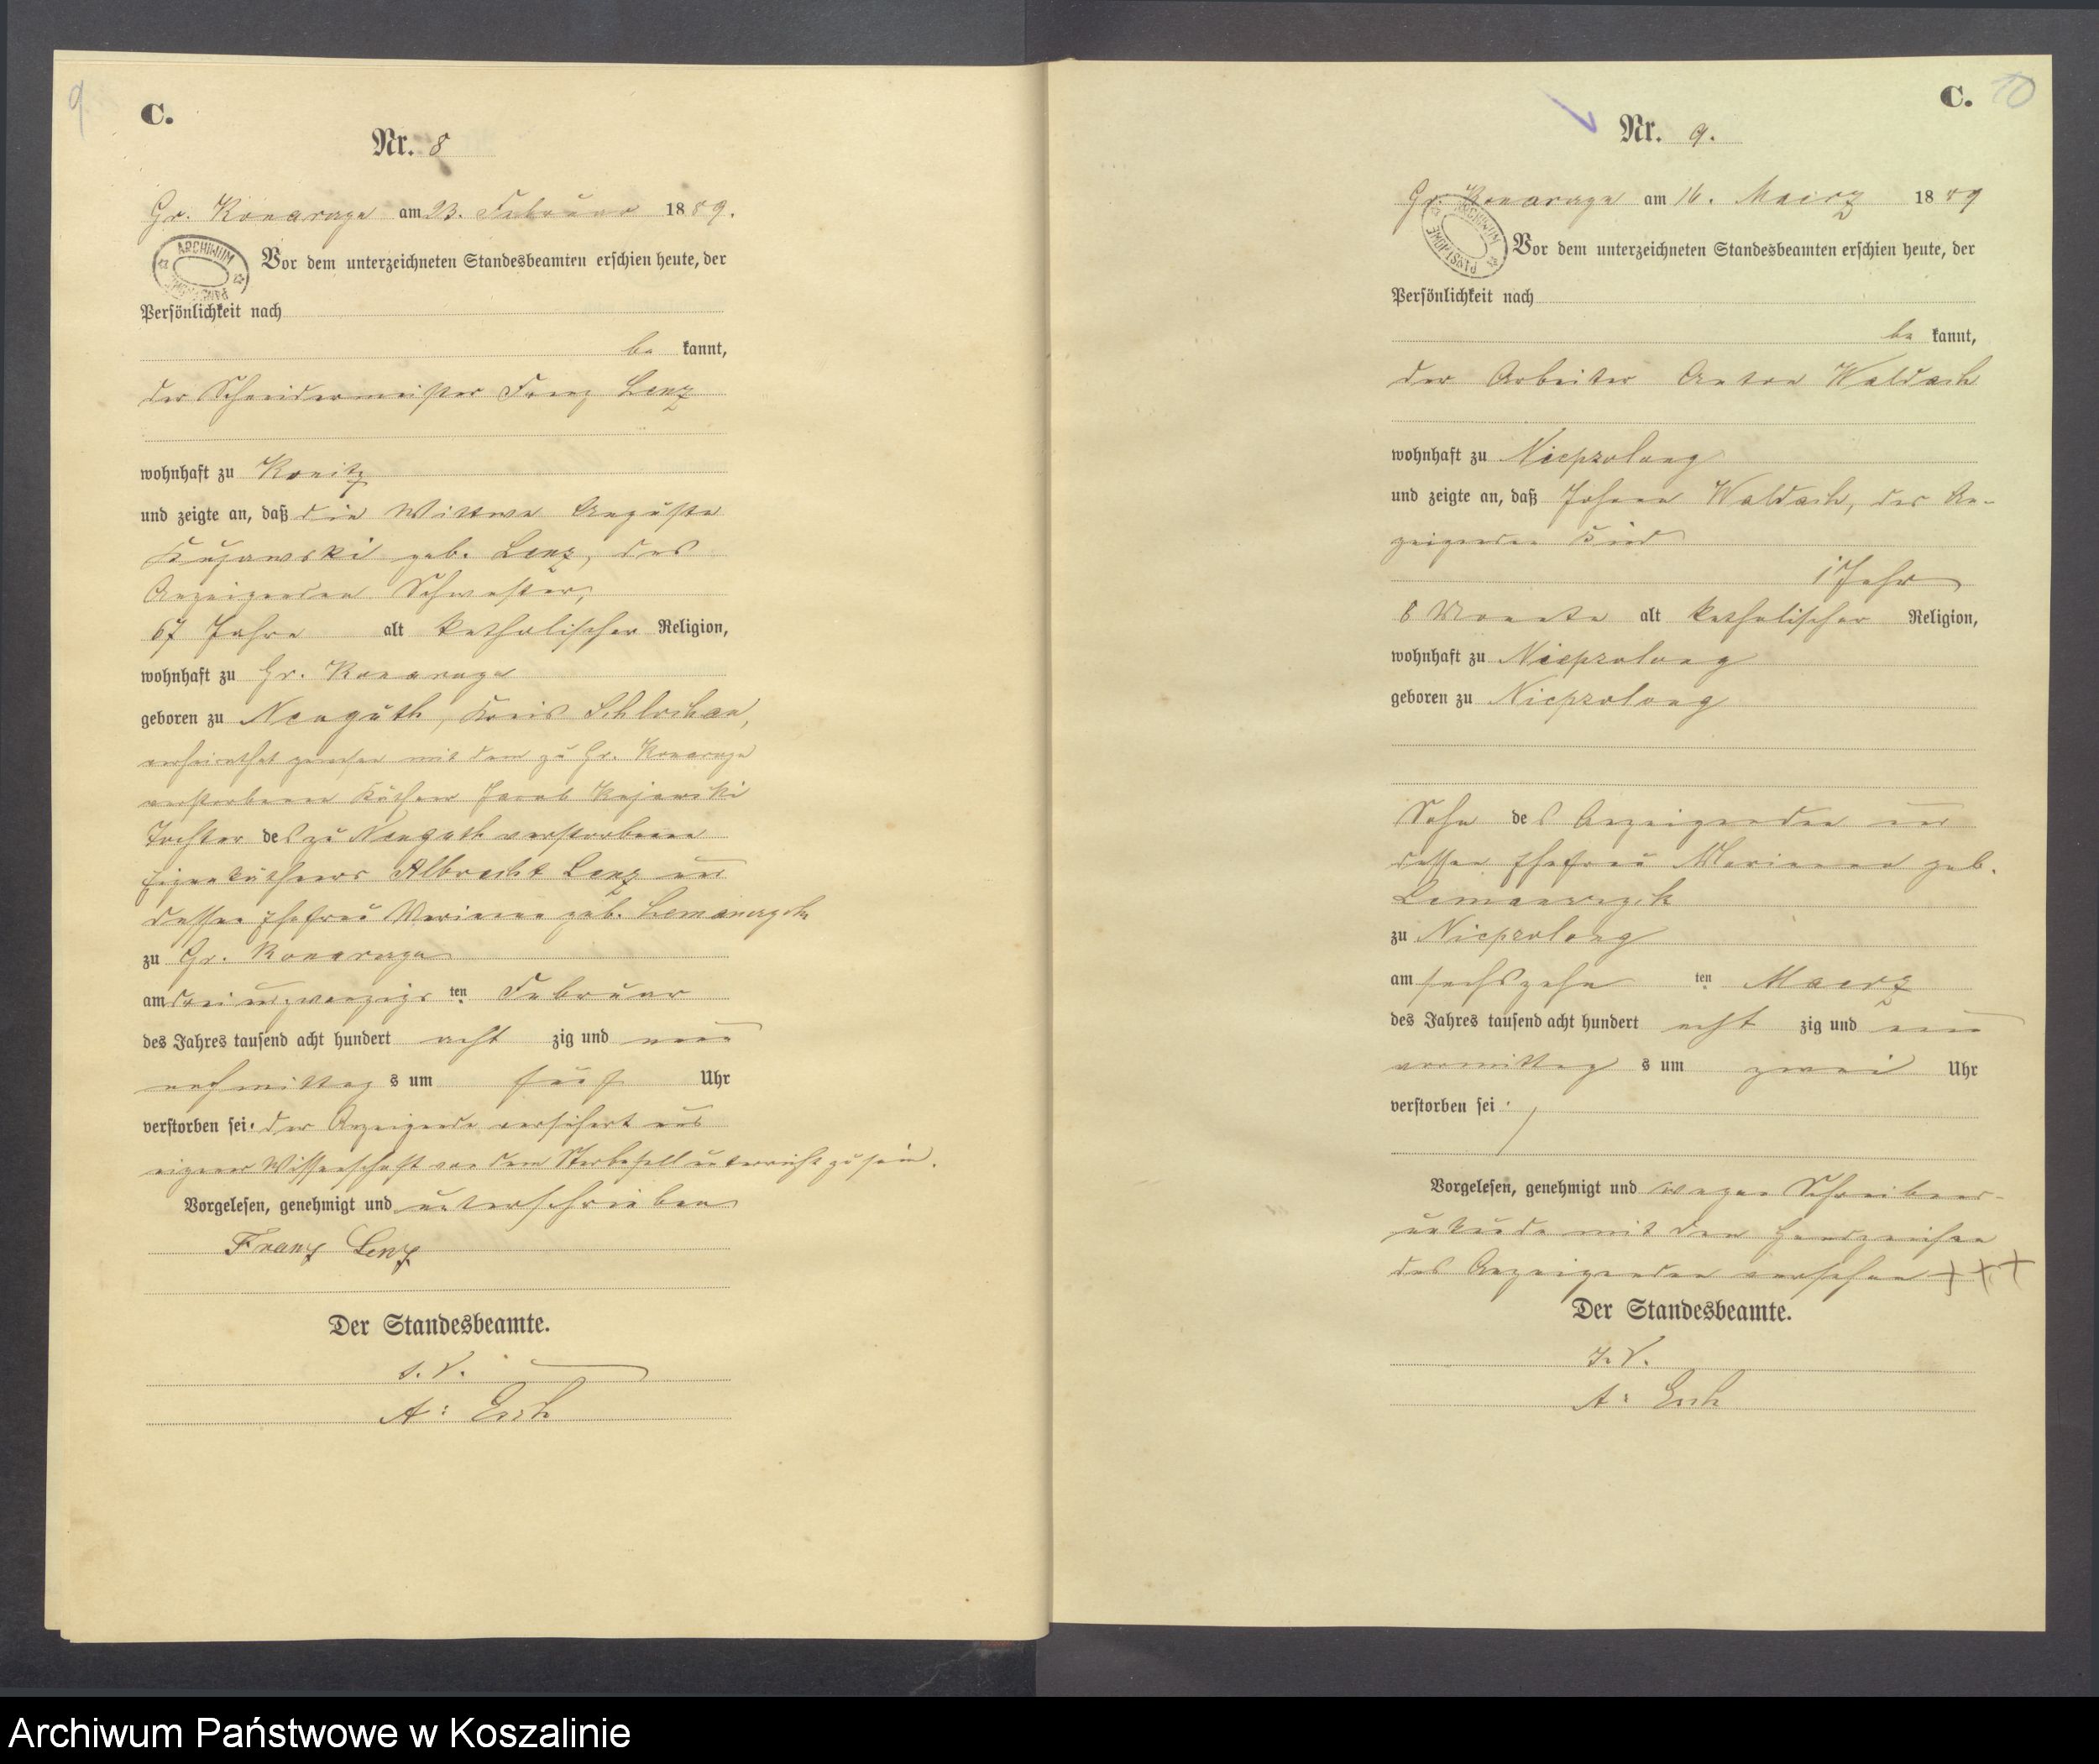 9
C.
Nr. 8
Gr. Konarzyn am 23. Februar 1889.
ARCHIWUM
Vor dem unterzeichneten Standesbeamten erschien heute, der
Persönlichkeit nach
be kannt,
der Schneidermeister Franz Lenz
wohnhaft zu Konitz
und zeigte an, daß die Wittwe Auguste
Kujawski geb. Lenz, des
Anzeigenden Schwester,
67 Jahre alt katholischer Religion,
wohnhaft zu Gr. Konarzyn
geboren zu Neuguth, Kreis Schlochau,
verheirathet gewesen mit dem zu Gr. Konarzyn
verstorbenen Käthner Jacob Kujawski
Tochter des zu Neuguth verstorbenen
Eigenkäthners Albrecht Lenz und
dessen Ehefrau Marianna geb. Lemanczyk
zu Gr. Konarzyn
am dreiundzwanzigs ten Februar
des Jahres tausend acht hundert acht zig und neun
nachmittag s um fünf Uhr
verstorben sei. der Anzeigende versichert aus
eigener Wissenschaft von dem Sterbefall unterrichtet zu sein.
Vorgelesen, genehmigt und unterschrieben
Franz Lenz
Der Standesbeamte.
I. V.
A:
C. 10
Nr. 9.
Gr. Konarzyn am 16. Maerz 1889
ARCHIWUM PAŃSTWOWE
Vor dem unterzeichneten Standesbeamten erschien heute, der
Persönlichkeit nach
be kannt,
der Arbeiter Anton Waldach
wohnhaft zu Niepszolong
und zeigte an, daß Johann Waldach, des An-
zeigenden Kind
1 Jahr
8 Monate alt katholischer Religion,
wohnhaft zu Niepszolong
geboren zu Niepszolong
Sohn des Anzeigenden und
dessen Ehefrau Marianna geb.
Lemanczyk
zu Niepszolong
am sechszehn ten Maerz
des Jahres tausend acht hundert acht zig und neun
vormittag s um zwei Uhr
verstorben sei.
Vorgelesen, genehmigt und wegen Schreibens-
unkunde mit den Handzeichen
des Anzeigenden versehen +++
Der Standesbeamte.
I. V.
A:
Archiwum Państwowe w Koszalinie